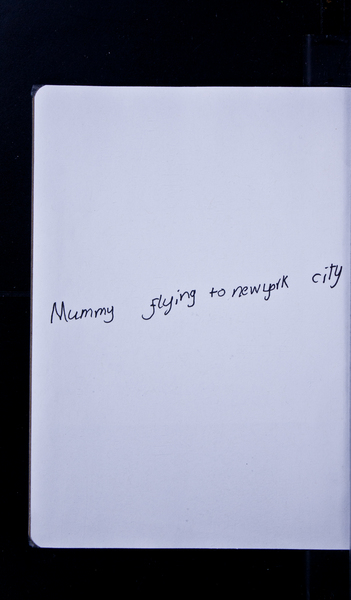 Mummy flying to newyork city